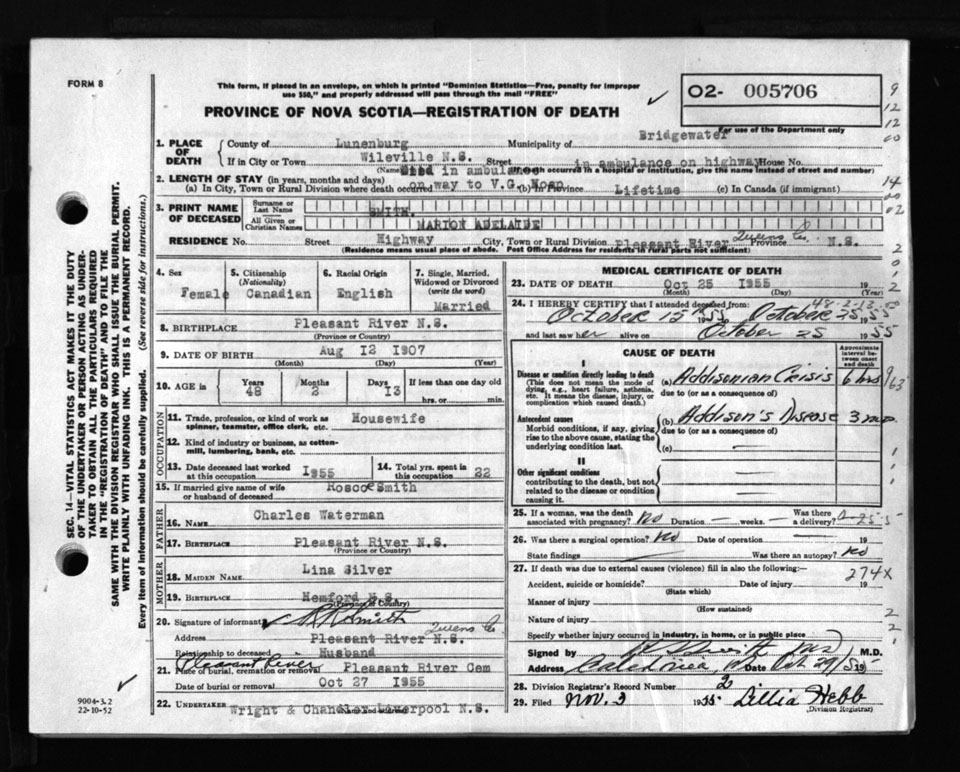 FORM 8
This form, if placed in an envelope, on which is printed "Dominion Statistics—Free, penalty for improper
use $50," and properly addressed will pass through the mail "FREE"
PROVINCE OF NOVA SCOTIA—REGISTRATION OF DEATH
O2- 005706
For use of the Department only
1. PLACE OF DEATH
County of Lunenburg Municipality of Bridgewater
If in City or Town Wileville N.S. Street in ambulance on highway House No.
(Name died in ambulance If death occurred in a hospital or institution, give the name instead of street and number)
2. LENGTH OF STAY (in years, months and days) on way to V.G. Hosp
(a) In City, Town or Rural Division where death occurred (b) in Province Lifetime (c) In Canada (if immigrant)
3. PRINT NAME OF DECEASED
Surname or Last Name SMITH.
All Given or Christian Names MARION ADELAIDE
RESIDENCE No. Street Highway City, Town or Rural Division Pleasant River Queens Co. Province N.S.
(Residence means usual place of abode. Post Office Address for Residents in rural parts not sufficient)
4. Sex Female
5. Citizenship (Nationality) Canadian
6. Racial Origin English
7. Single, Married, Widowed or Divorced (write the word) Married
8. BIRTHPLACE Pleasant River N.S.
(Province or Country)
9. DATE OF BIRTH Aug 12 1907
(Month) (Day) (Year)
10. AGE in Years 48 Months 2 Days 13 If less than one day old
hrs. or min.
OCCUPATION
11. Trade, profession, or kind of work as spinner, teamster, office clerk, etc. Housewife
12. Kind of industry or business, as cotton-mill, lumbering, bank, etc.
13. Date deceased last worked at this occupation 1955
14. Total yrs. spent in this occupation 22
15. If married give name of wife or husband of deceased Roscoe Smith
FATHER
16. NAME Charles Waterman
17. BIRTHPLACE Pleasant River N.S.
(Province or Country)
MOTHER
18. MAIDEN NAME Lina Silver
19. BIRTHPLACE Hemford N.S.
(Province or Country)
20. Signature of informant R Smith
Address Pleasant River N.S. Queens Co
Relationship to deceased Husband
Pleasant River
21. Place of burial, cremation or removal Pleasant River Cem
Date of burial or removal Oct 27 1955
22. UNDERTAKER Wright & Chandler Liverpool N.S.
(Name and address)
MEDICAL CERTIFICATE OF DEATH
23. DATE OF DEATH Oct 25 1955 19
(Month) (Day) (Year)
48-2-13
24. I HEREBY CERTIFY that I attended deceased from:
October 15th 1955 October 25 1955
and last saw her alive on October 25 1955
CAUSE OF DEATH
Approximate interval between onset and death
I
Disease or condition directly leading to death
(This does not mean the mode of dying, e.g., heart failure, asthenia, etc. It means the disease, injury, or complication which caused death.)
(a) Addisonian Crisis 6 hrs
due to (or as a consequence of)
Antecedent causes
Morbid conditions, if any, giving rise to the above cause, stating the underlying condition last.
(b) Addison's Disease 3 mos
due to (or as a consequence of)
(c) —
II
Other significant conditions
contributing to the death, but not related to the disease or condition causing it.
25. If a woman, was the death associated with pregnancy? No Duration — weeks. — Was there a delivery?
26. Was there a surgical operation? No Date of operation — 19
State findings Was there an autopsy? No
27. If death was due to external causes (violence) fill in also the following:—
274X
Accident, suicide or homicide? Date of injury 19
(State which)
Manner of injury
(How sustained)
Nature of injury
Specify whether injury occurred in industry, in home, or in public place
Signed by M.D.
Address Caledonia Date Oct 29/55 19
28. Division Registrar's Record Number 2
29. Filed Nov. 3 1955 Lillia Hebb
(Division Registrar)
SEC. 14—VITAL STATISTICS ACT MAKES IT THE DUTY
OF THE UNDERTAKER OR PERSON ACTING AS UNDER-
TAKER TO OBTAIN ALL THE PARTICULARS REQUIRED
IN THE "REGISTRATION OF DEATH" AND TO FILE THE
SAME WITH THE DIVISION REGISTRAR WHO SHALL ISSUE THE BURIAL PERMIT.
WRITE PLAINLY WITH UNFADING INK. THIS IS A PERMANENT RECORD.
Every item of information should be carefully supplied. (See reverse side for instructions.)
9004-3.2
22-10-52
9
12
12
00
14
00
02
2
0
1
2
963
1
1
1
2
2
1